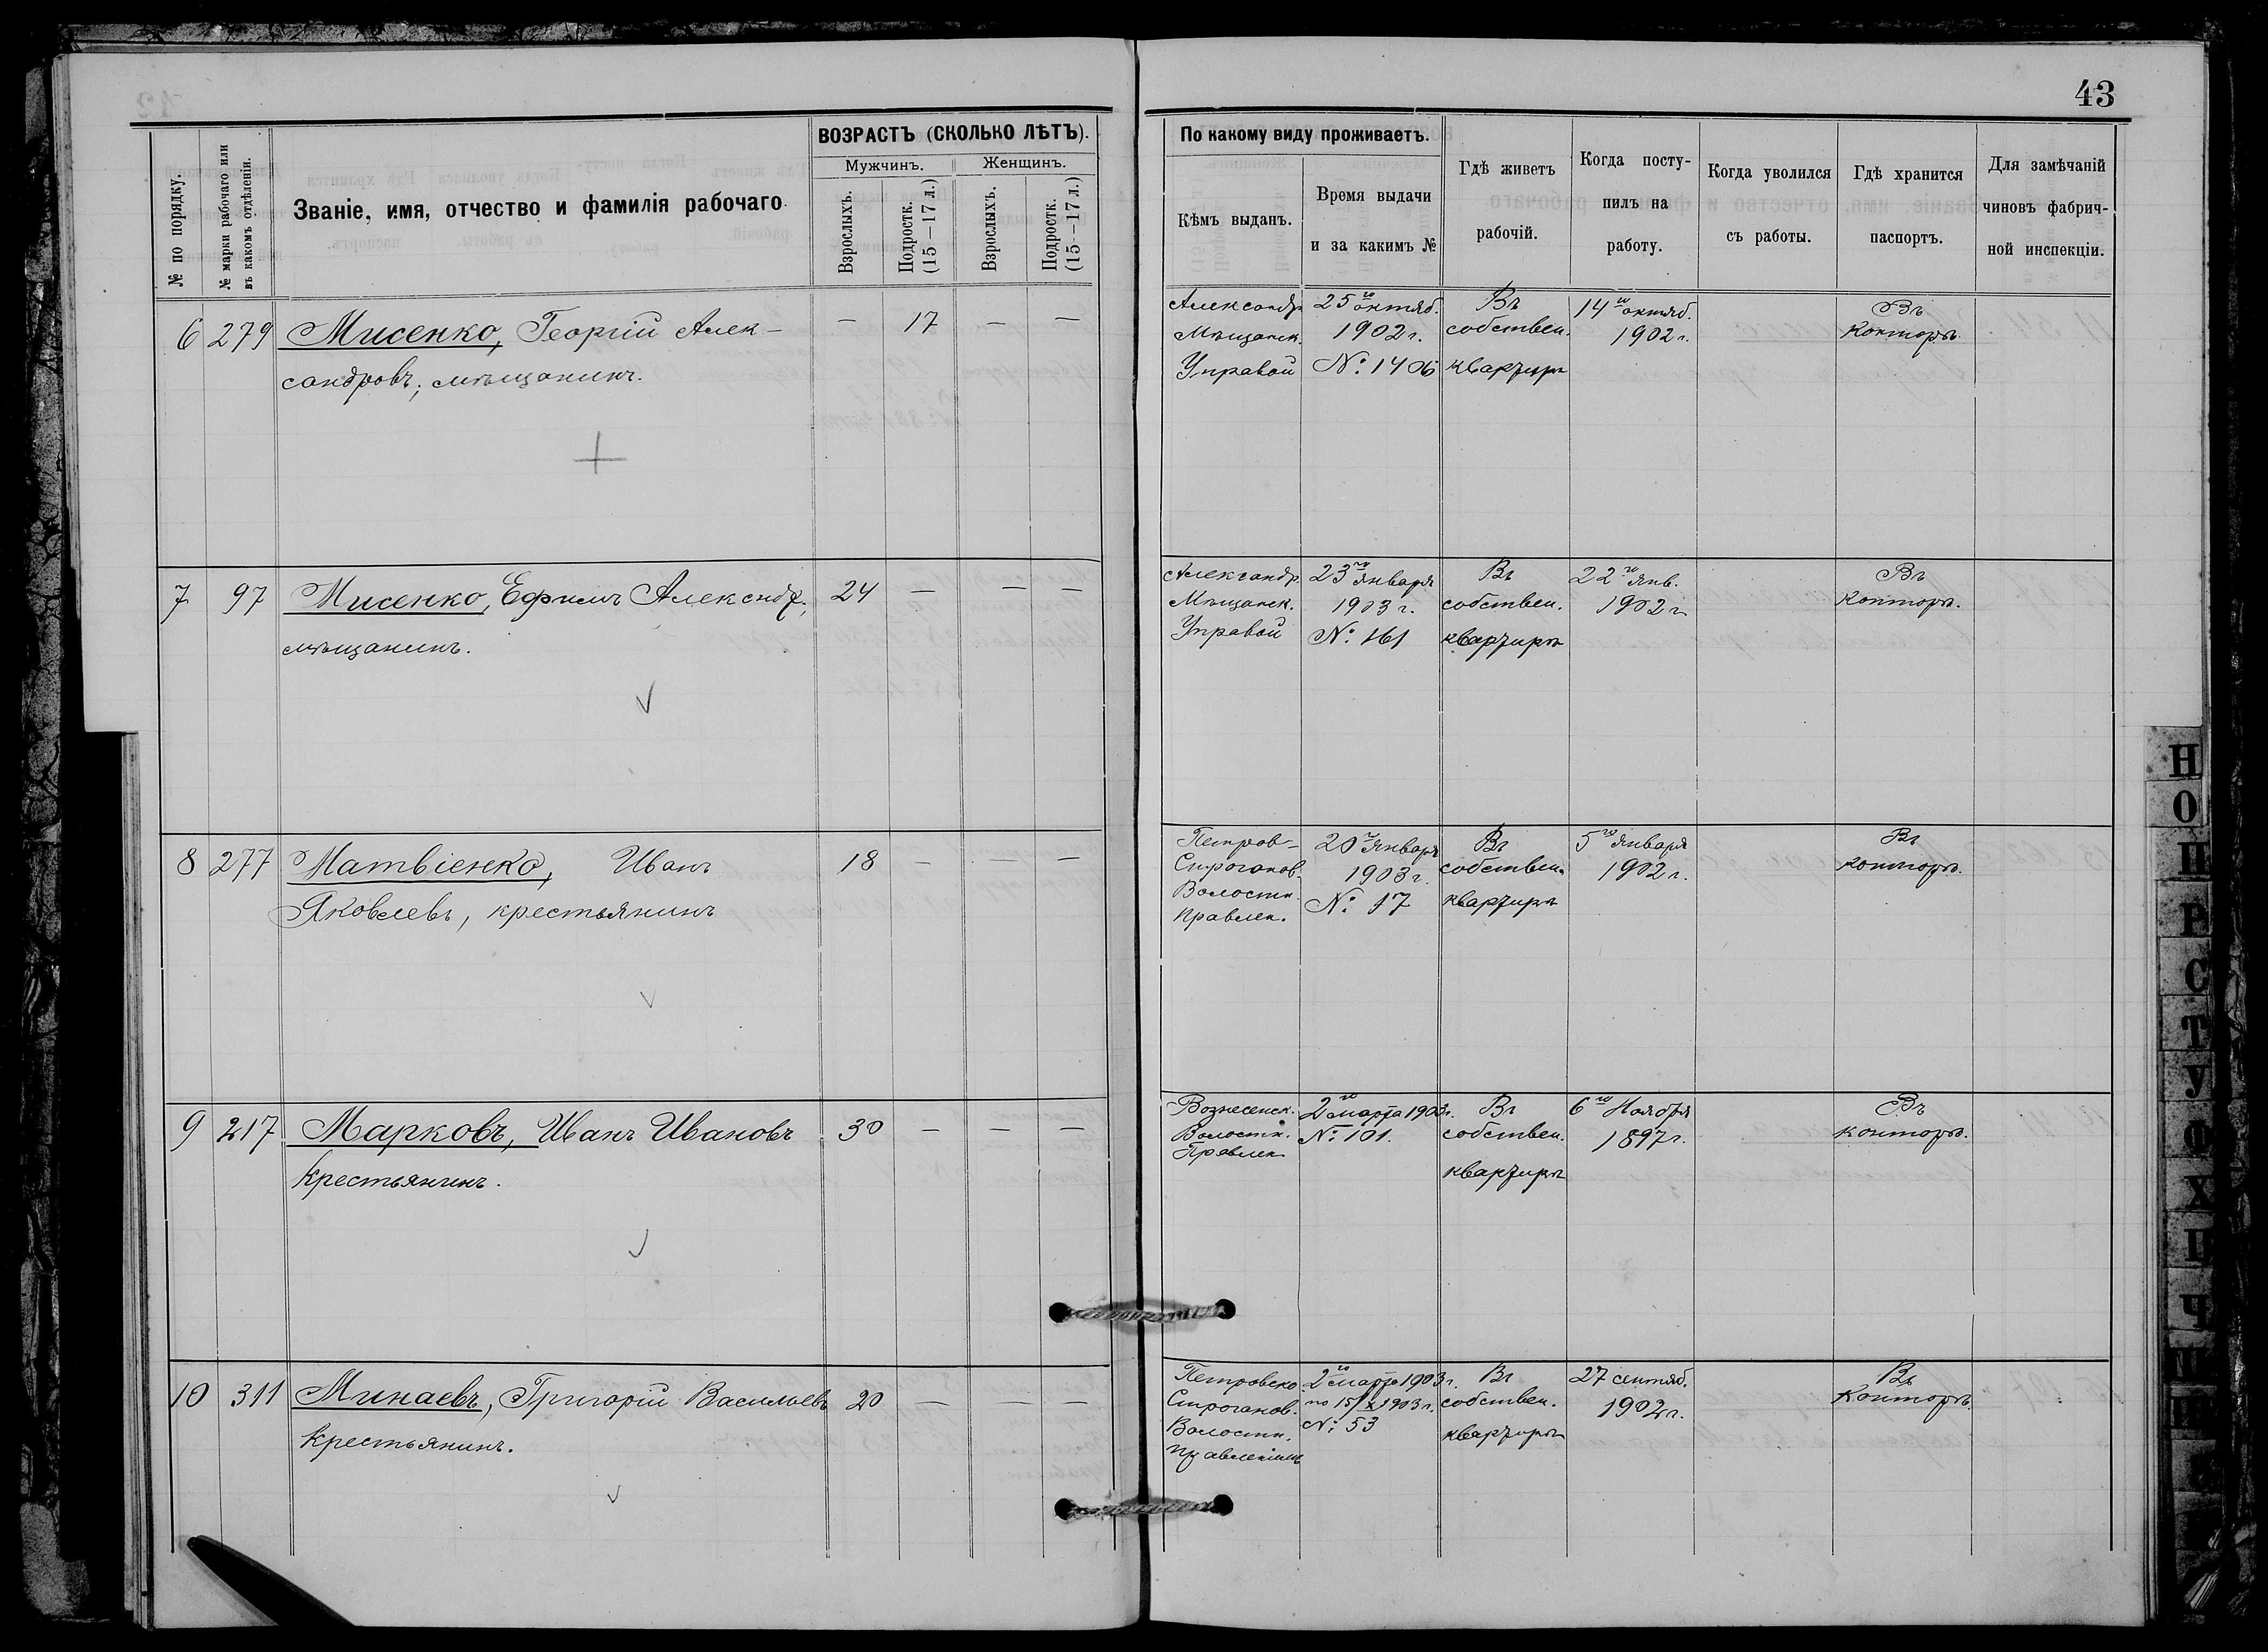 43
№ по порядку.
№ марки рабочаго или
въ какомъ отдѣленіи.
Званіе, имя, отчество и фамилія рабочаго.
ВОЗРАСТЪ (СКОЛЬКО ЛѢТЪ).
Мужчинъ.
Женщинъ.
Взрослыхъ.
Подростк.
(15—17 л.)
Взрослыхъ.
Подростк.
(15—17 л.)
По какому виду проживаетъ.
Кѣмъ выданъ.
Время выдачи
и за какимъ №
Гдѣ живетъ
рабочій.
Когда посту-
пилъ на
работу.
Когда уволился
съ работы.
Гдѣ хранится
паспортъ.
Для замѣчаній
чиновъ фабрич-
ной инспекціи.
6 279 Мисенко, Георгій Алек-
сандровъ, мѣщанинъ.
— 17 — —
Александр.
Мѣщанск.
Управой
25го октяб.
1902 г.
№ 1406
Въ
собствен.
квартирѣ
14го октяб.
1902 г.
Въ
Конторѣ.
7 97 Мисенко, Ефимъ Александр.,
мѣщанинъ.
24 — — —
Александр.
Мѣщанск.
Управой
23го Января
1903 г.
№ 161
Въ
собствен.
квартирѣ
22го Янв.
1902 г.
Въ
Конторѣ.
8 277 Матвіенко, Иванъ
Яковлевъ, крестьянинъ
18 — — —
Петров-
Строганов.
Волостн.
Правлен.
20го Января
1903 г.
№ 17
Въ
собствен.
квартирѣ
5го Января
1902 г.
Въ
конторѣ.
9 217 Марковъ, Иванъ Ивановъ
Крестьянинъ.
30 — — —
Вознесенск.
Волостн.
Правлен.
2го марта 1903 г.
№ 101.
Въ
собствен.
квартирѣ
6го Ноября
1897 г.
Въ
конторѣ.
10 311 Минаевъ, Григорій Васильевъ
Крестьянинъ.
20 — — —
Петровско
Строганов.
Волостн.
Правленіемъ
2го марта 1903 г.
по 15/X 1903 г.
№ 53
Въ
собствен.
квартирѣ
27 сентяб.
1902 г.
Въ
Конторѣ.
Н
О
П
Р
С
Т
У
Ф
Х
Ц
Ч
Ш